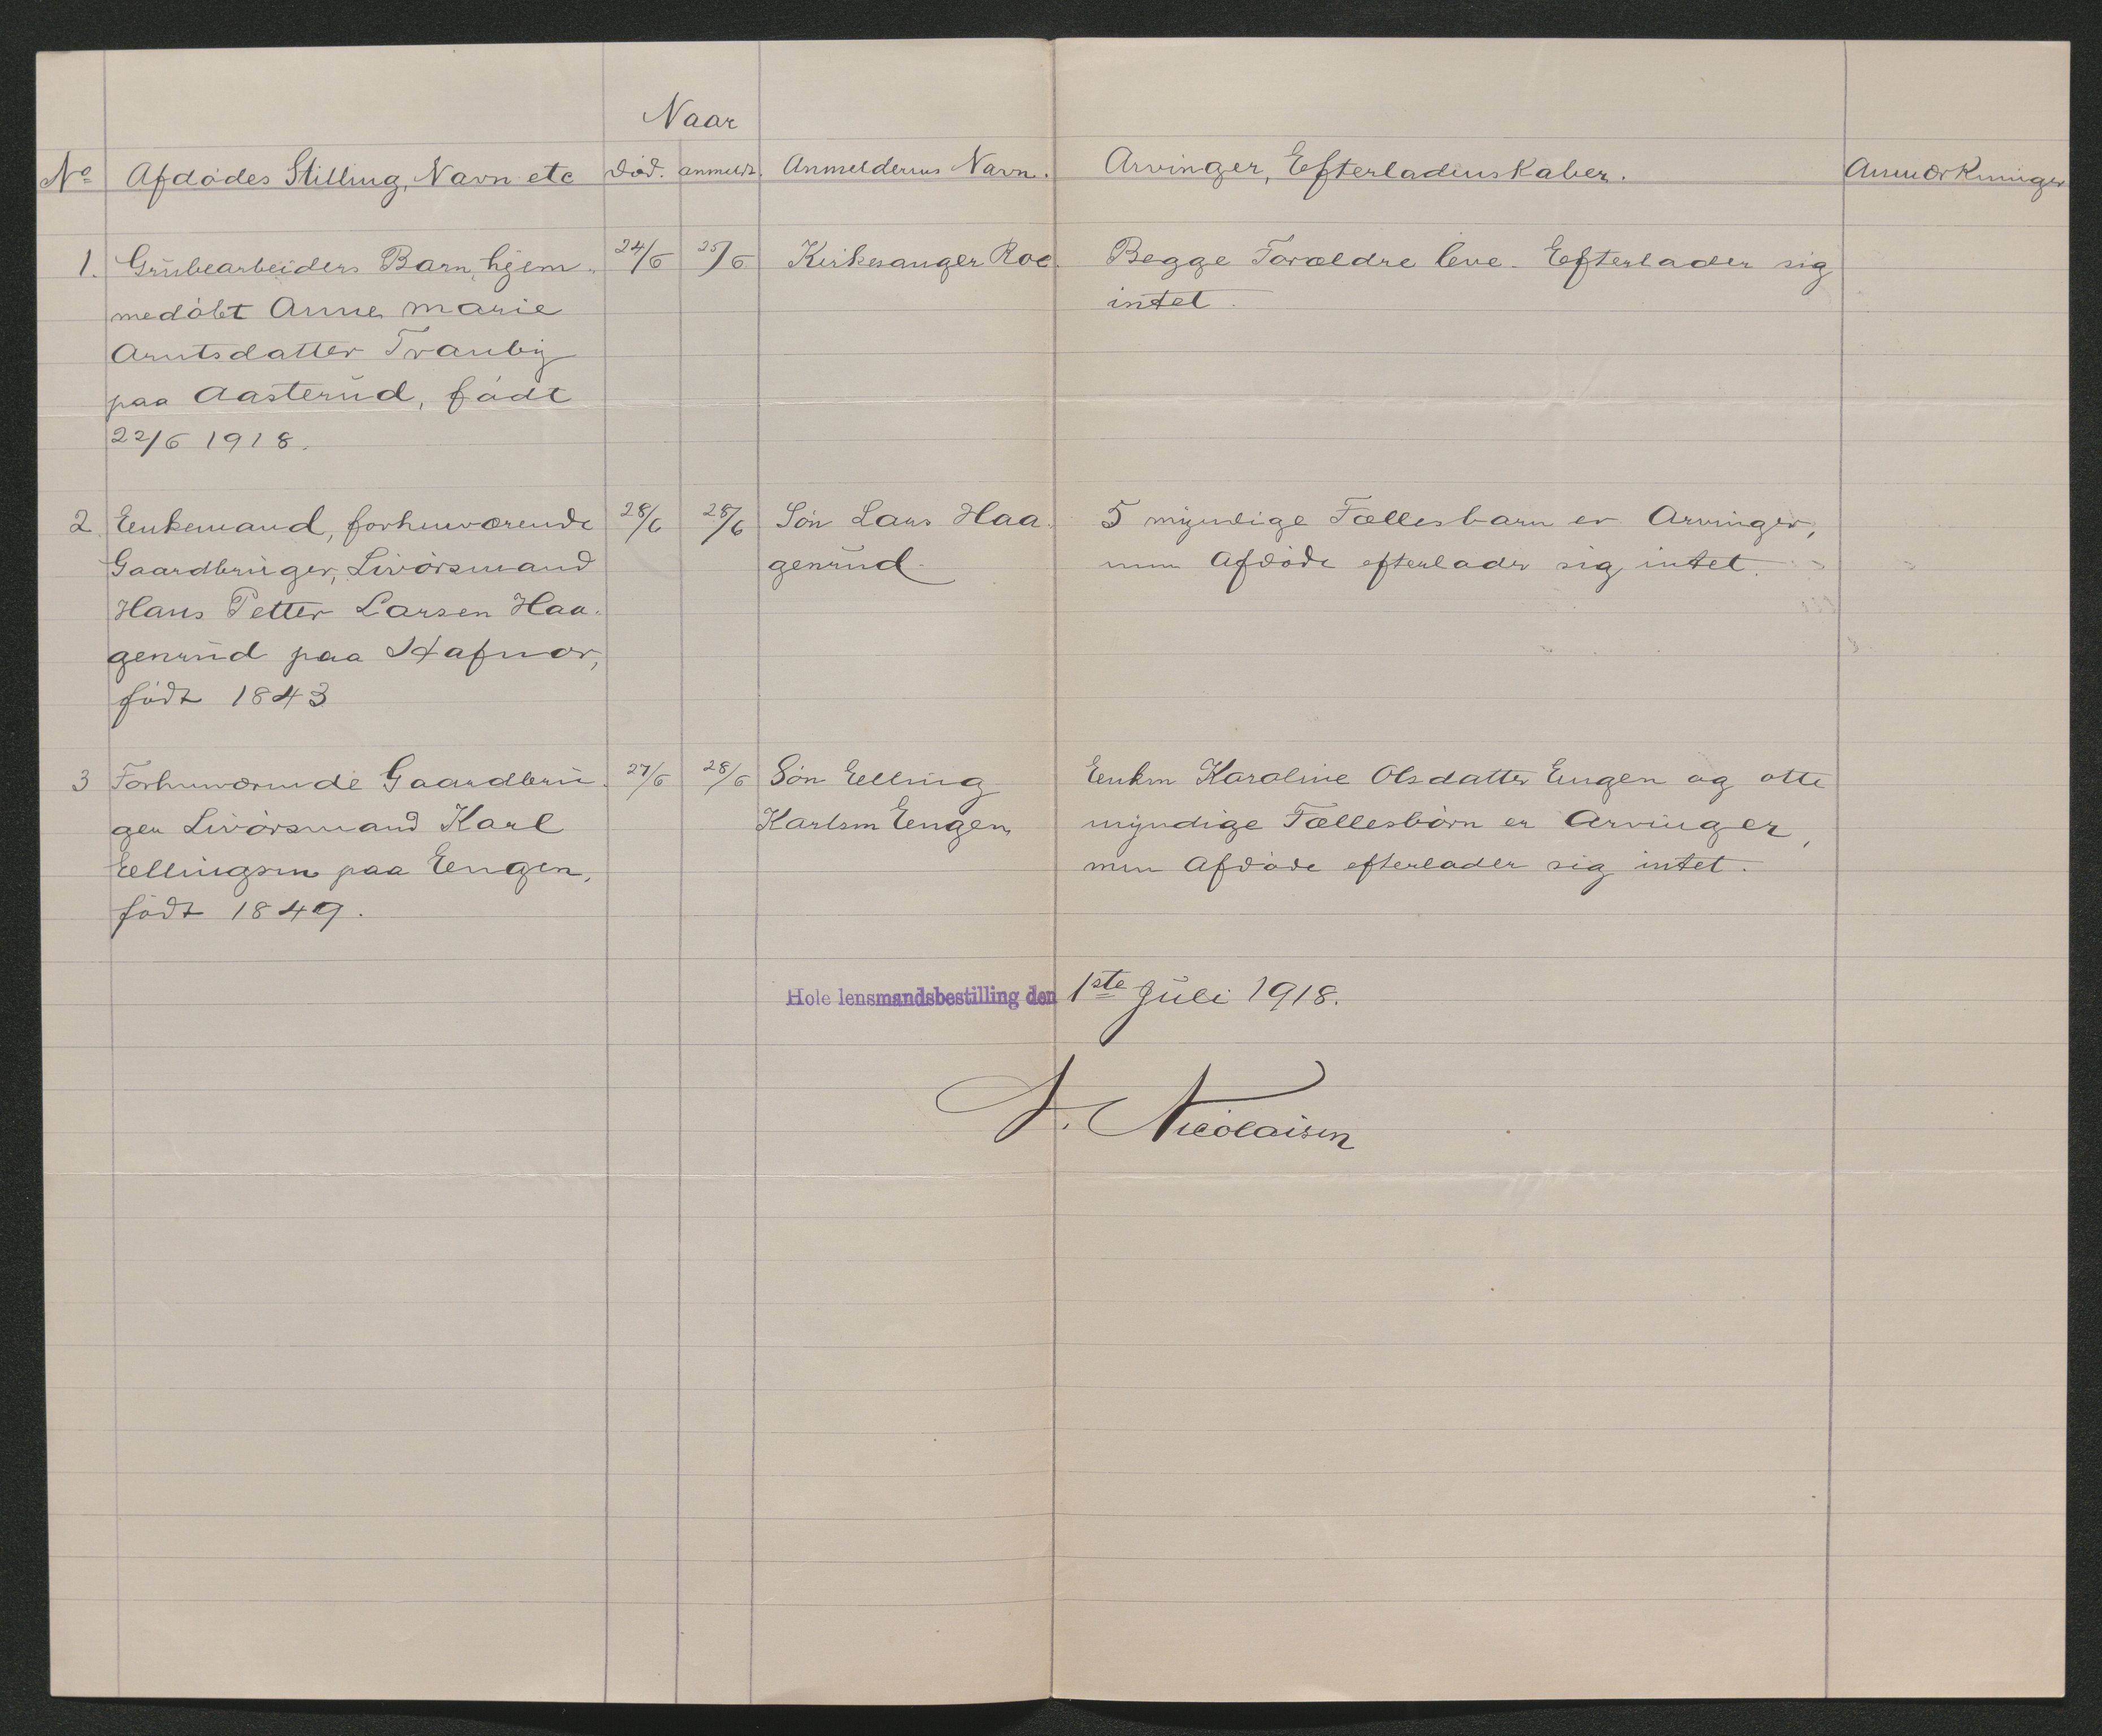 Naar
No Afdødes Stilling, Navn etc død. anmeldt. Anmelderens Navn. Arvinger, Efterladenskaber. Anmærkninger
1. Grubearbeiders Barn, hjem- 24/6 25/6 Kirkesanger Roe. Begge Forældre leve. Efterlader sig
medøbt Anne Marie intet.
Arntsdatter Tranby
paa Aasterud, født
22/6 1918.
2. Enkemand, forhenværende 28/6 28/6 Søn Lars Haa- 5 myndige Fællesbarn er Arvinger,
Gaardbruger, Livørsmand genrud. men Afdøde efterlader sig intet.
Hans Petter Larsen Haa-
genrud paa Hafnor,
født 1843
3 Forhenværende Gaardbru- 27/6 28/6 Søn Elling Enken Karoline Olsdatter Engen og otte
ger Livørsmand Karl Karlsen Engen myndige Fællesbørn er Arvinger,
Ellingsen paa Engen, men Afdøde efterlader sig intet.
født 1849.
Hole lensmandsbestilling den 1ste Juli 1918.
N. Nicolaisen